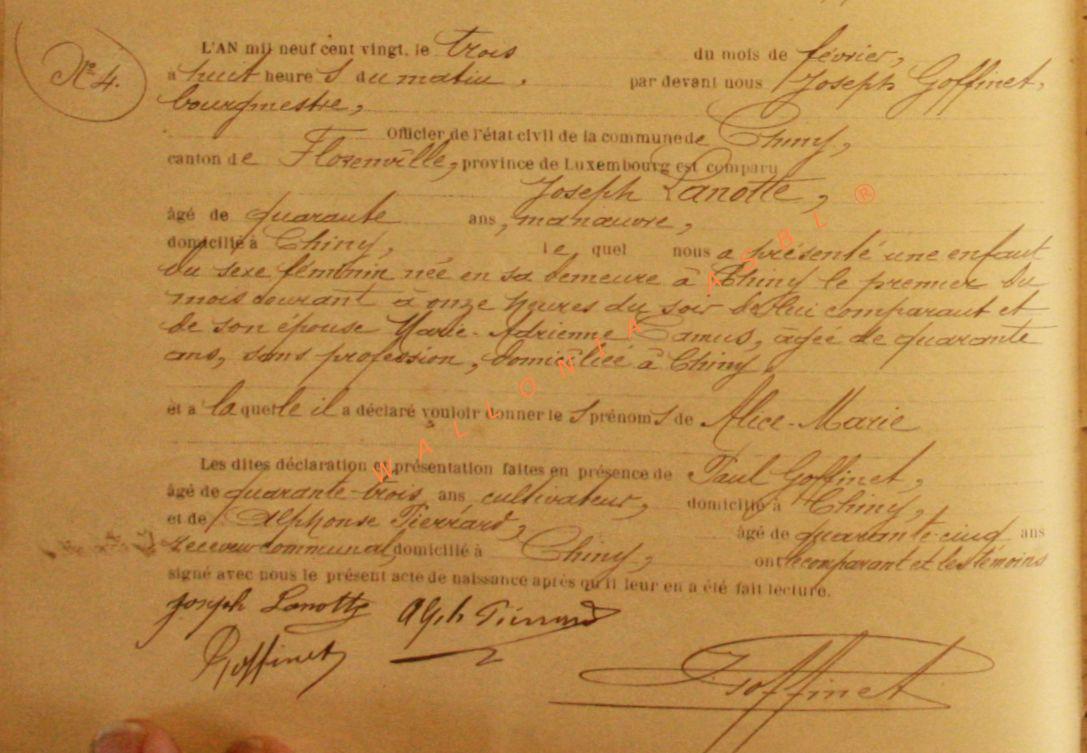 N° 4.
L'AN mil neuf cent vingt, le trois du mois de février,
à huit heures du matin, par devant nous Joseph Goffinet,
bourgmestre,
Officier de l'état civil de la commune de Chiny,
canton de Florenville, province de Luxembourg est comparu
Joseph Lanotte,
âgé de quarante ans, manœuvre,
domicilié à Chiny, lequel nous a présenté une enfant
du sexe féminin née en sa demeure à Chiny le premier du
mois courant à onze heures du soir de lui comparant et
de son épouse Marie-Adrienne Camus, âgée de quarante
ans, sans profession, domiciliée à Chiny,
et a laquelle il a déclaré vouloir donner les prénoms de Alice-Marie
Les dites déclaration et présentation faites en présence de Paul Goffinet,
âgé de quarante-trois ans cultivateur, domicilié à Chiny,
et de Alphonse Pierrard, âgé de quarante-cinq ans
receveur communal, domicilié à Chiny, ont le comparant et les témoins
signé avec nous le présent acte de naissance après qu'il leur en a été fait lecture.
Joseph Lanotte Alph Pierrard
P Goffinet J Goffinet
WALLONIA ASBL ®